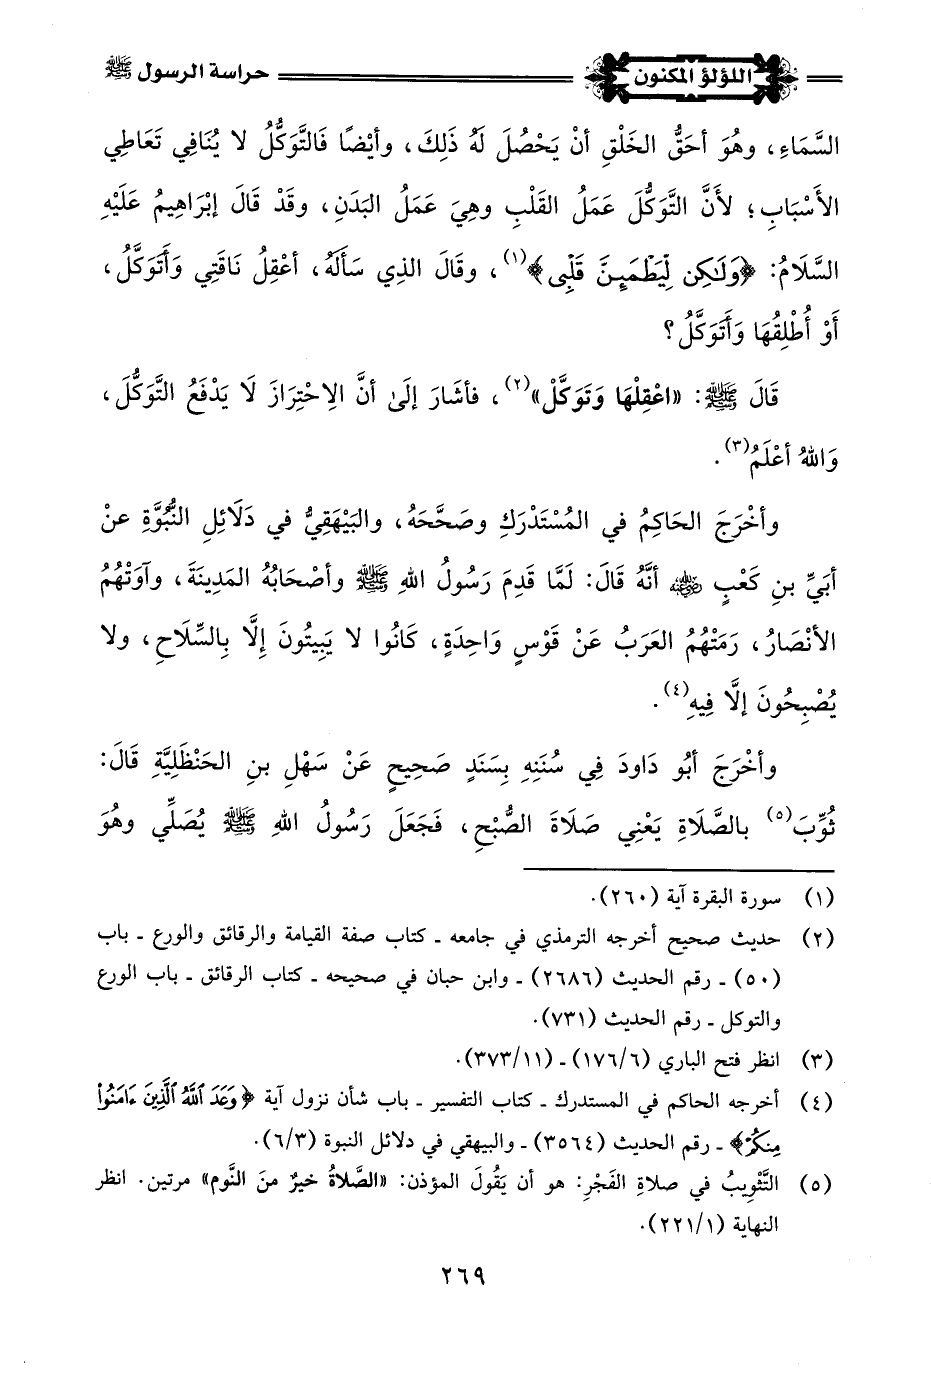 اللؤلؤ المكنون حراسة الرسول ﷺ
السَّمَاءِ، وهُوَ أحَقُّ الخَلْقِ أنْ يَحْصُلَ لَهُ ذَلِكَ، وأيْضًا فَالتَّوَكُّلُ لا يُنَافِي تَعَاطِي
الأَسْبَابِ؛ لأَنَّ التَّوَكُّلَ عَمَلُ القَلْبِ وهِيَ عَمَلُ البَدَنِ، وقَدْ قَالَ إبْرَاهِيمُ عَلَيْهِ
السَّلَامُ: ﴿وَلَٰكِن لِّيَطْمَئِنَّ قَلْبِى﴾(١)، وقَالَ الذِي سَأَلَهُ، أعْقِلُ نَاقَتِي وَأَتَوَكَّلُ،
أَوْ أُطْلِقُهَا وَأَتَوَكَّلُ؟
قَالَ ﷺ: «اعْقِلْهَا وَتَوَكَّلْ»(٢)، فأشَارَ إلَىٰ أنَّ الِاحْتِرَازَ لَا يَدْفَعُ التَّوَكُّلَ،
وَاللهُ أعْلَمُ(٣).
وأخْرَجَ الحَاكِمُ في المُسْتَدْرَكِ وصَحَّحَهُ، والبَيْهَقِيُّ في دَلَائِلِ النُّبُوَّةِ عنْ
أبَيِّ بنِ كَعْبٍ ﵁ أنَّهُ قَالَ: لَمَّا قَدِمَ رَسُولُ اللهِ ﷺ وأصْحَابُهُ المَدِينَةَ، وآوَتْهُمُ
الأنْصَارُ، رَمَتْهُمُ العَرَبُ عَنْ قَوْسٍ وَاحِدَةٍ، كَانُوا لا يَبِيتُونَ إلَّا بِالسِّلَاحِ، ولا
يُصْبِحُونَ إلَّا فِيهِ(٤).
وأخْرَجَ أبُو دَاودَ فِي سُنَنِهِ بِسَنَدٍ صَحِيحٍ عَنْ سَهْلِ بنِ الحَنْظَلِيَّةِ قَالَ:
ثُوِّبَ(٥) بالصَّلَاةِ يَعْنِي صَلَاةَ الصُّبْحِ، فَجَعَلَ رَسُولُ اللهِ ﷺ يُصَلِّي وهُوَ
(١) سورة البقرة آية (٢٦٠).
(٢) حديث صحيح أخرجه الترمذي في جامعه ـ كتاب صفة القيامة والرقائق والورع ـ باب
(٥٠) ـ رقم الحديث (٢٦٨٦) ـ وابن حبان في صحيحه ـ كتاب الرقائق ـ باب الورع
والتوكل ـ رقم الحديث (٧٣١).
(٣) انظر فتح الباري (١٧٦/٦) ـ (٣٧٣/١١).
(٤) أخرجه الحاكم في المستدرك ـ كتاب التفسير ـ باب شأن نزول آية ﴿وَعَدَ ٱللَّهُ ٱلَّذِينَ ءَامَنُوا۟
مِنكُمْ﴾ ـ رقم الحديث (٣٥٦٤) ـ والبيهقي في دلائل النبوة (٦/٣).
(٥) التَّثْوِيبُ في صلاةِ الفَجْرِ: هو أن يَقُولَ المؤذن: «الصَّلاةُ خيرٌ منَ النَّوم» مرتين. انظر
النهاية (٢٢١/١).
٢٦٩